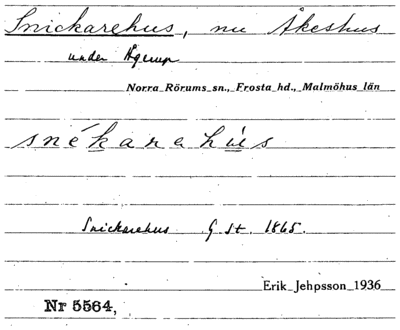 Snickarehus, nu Åkeshus
under Ågerup
Norra Rörums sn., Frosta hd., Malmöhus län
snékarahús
Snickarehus G St. 1865.
Erik Jehpsson 1936
Nr 5564,